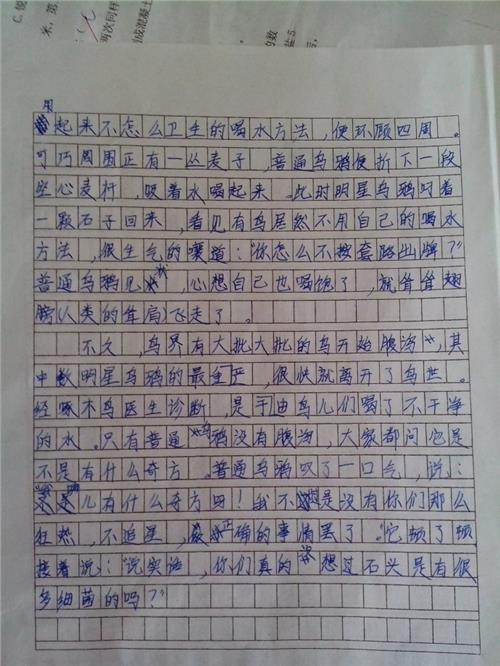 C. 便
米，第
两次同样
制成混凝土
的数
盐 5.
用
起来不怎么卫生的喝水方法，便环顾四周。
可巧周围正有一丛麦子，普通乌鸦便折下一段
空心麦杆，吸着水喝起来。此时明星乌鸦叼着
一颗石子回来，看见有鸟居然不用自己的喝水
方法，很生气的嚷道：“你怎么不按套路出牌？”
普通乌鸦见状，心想自己也喝饱了，就耸耸翅
膀(人类的耸肩)飞走了。
不久，鸟界有大批大批的鸟开始腹泻，其
中明星乌鸦的最严重，很快就离开了鸟世。
经啄木鸟医生诊断，是于由鸟儿们喝了不干净
的水。只有普通乌鸦没有腹泻，大家都问它是
不是有什么奇方。普通乌鸦叹了一口气，说：
儿有什么奇方吗！我不是没有你们那么
狂热，不追星，做正确的事情罢了。”它顿了顿
接着说：“说实话，你们真的没想过石头是有很
多细菌的吗？”